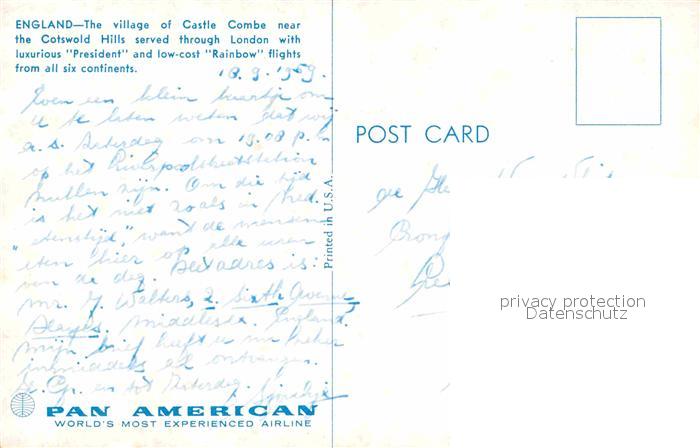 ENGLAND—The village of Castle Combe near
the Cotswold Hills served through London with
luxurious "President" and low-cost "Rainbow" flights
from all six continents.
18.9.'59.
Even een klein kaartje om
u te laten weten dat wij
a.s. Saterdag om 19.08 p.m.
op het Liverpoolstreetstation
zullen zijn. Om die tijd
is het niet zoals in Ned.
"etenstijd", want de mensen
eten hier op alle uren
van de dag. Het adres is:
mr. J. Walters, 2. Sixth Avenue,
Hayes, Middlesex. England.
Mijn brief heeft u zeker
inmiddels al ontvangen.
en tot Saterdag.
POST CARD
Printed in U.S.A.
privacy protection
Datenschutz
PAN AMERICAN
WORLD'S MOST EXPERIENCED AIRLINE